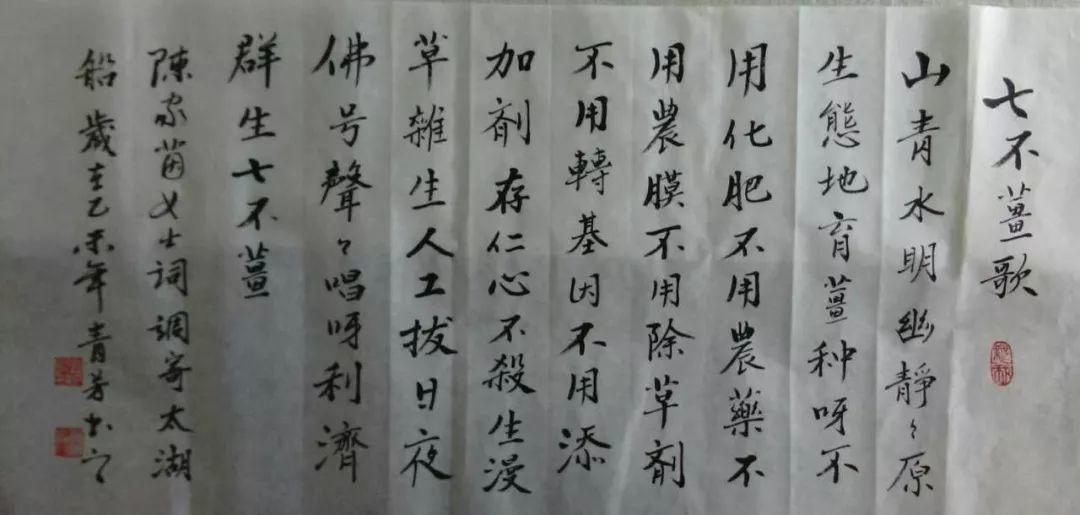 七不薑歌
山青水明幽靜々原
生態地育薑种呀不
用化肥不用農藥不
用農膜不用除草剂
不用轉基因不用添
加剤存仁心不殺生漫
草雜生人工拔日夜
佛号聲々唱呀利濟
群生七不薑
陳家茵女士詞調寄太湖
船歲在乙未年青芳书之